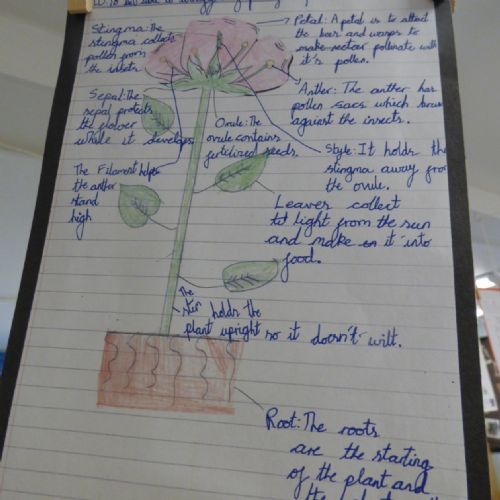 Stingma: the
stingma collects
pollen from
the insects.
Petal: A petal is to attract
the bees and wasps to
make nectar pollinate with
it's pollen.
Anther: The anther has
pollen sacs which
against the insects.
Sepal: The
sepal protects
the flower
while it develops
Ovule: The
ovule contains
fertilized seeds.
Style: It holds the
stingma away from
the ovule.
The Filament helps
the anther
stand
high
Leaves collect
light from the sun
and make it into
food.
The
holds the
plant upright so it doesn't wilt.
Root: The roots
are the starting
of the plant and